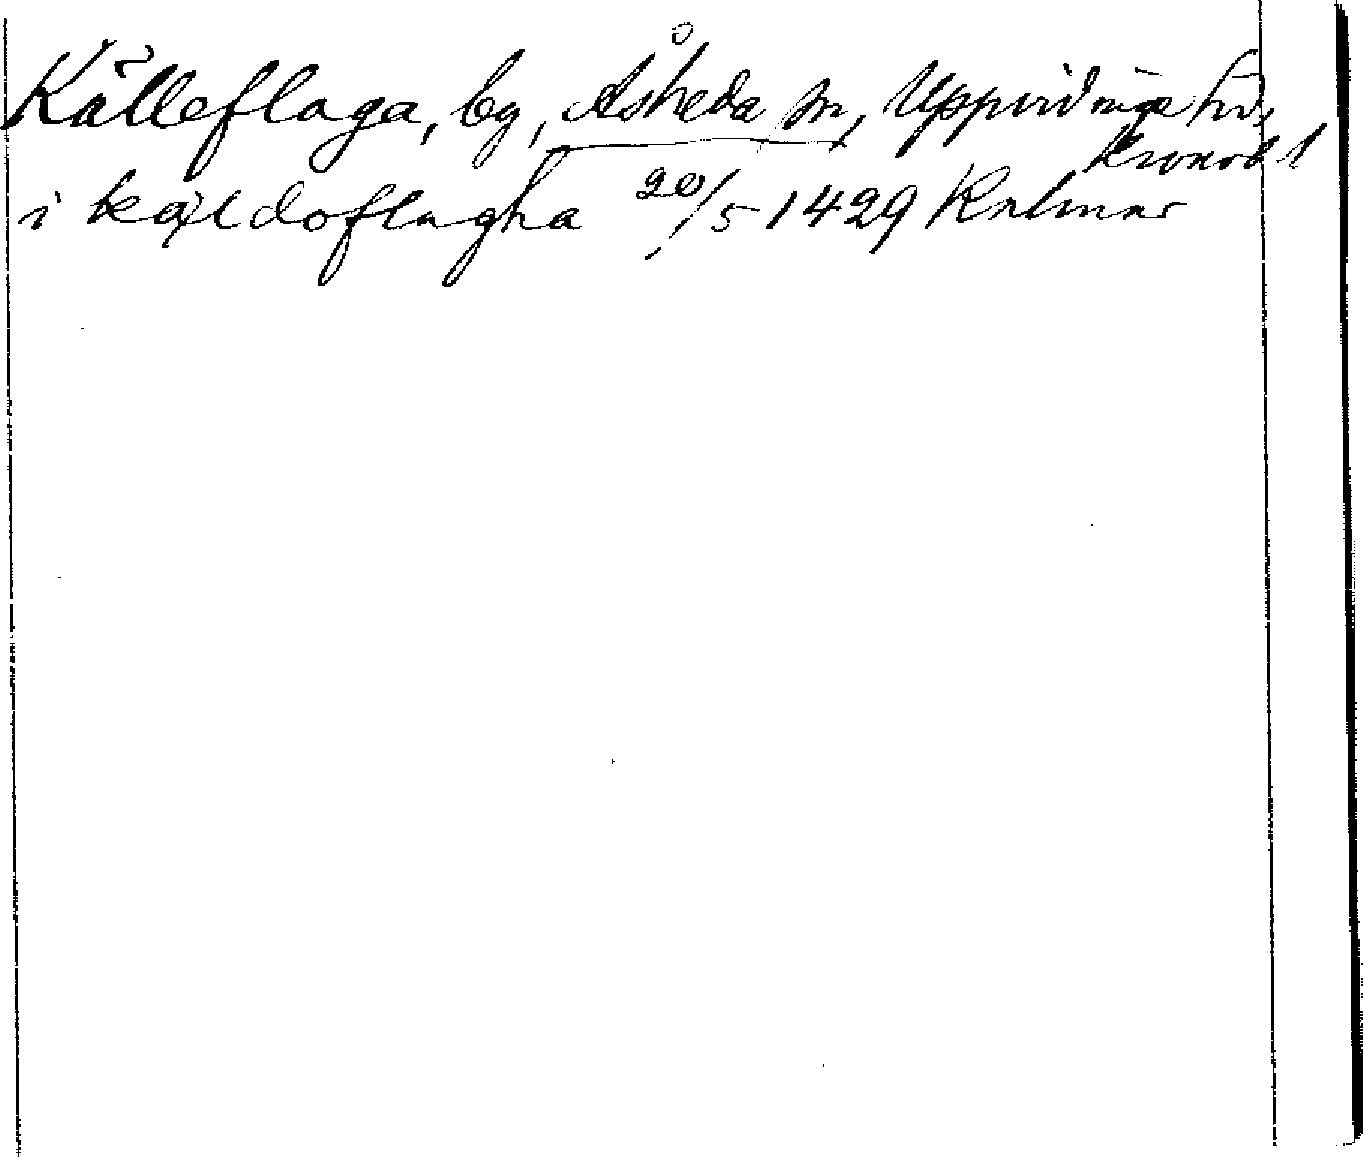 Källeflaga, by, Åsheda sn, Uppvidinge hd,
Kronob l
i kældoflagha 20/5 1429 Kalmar